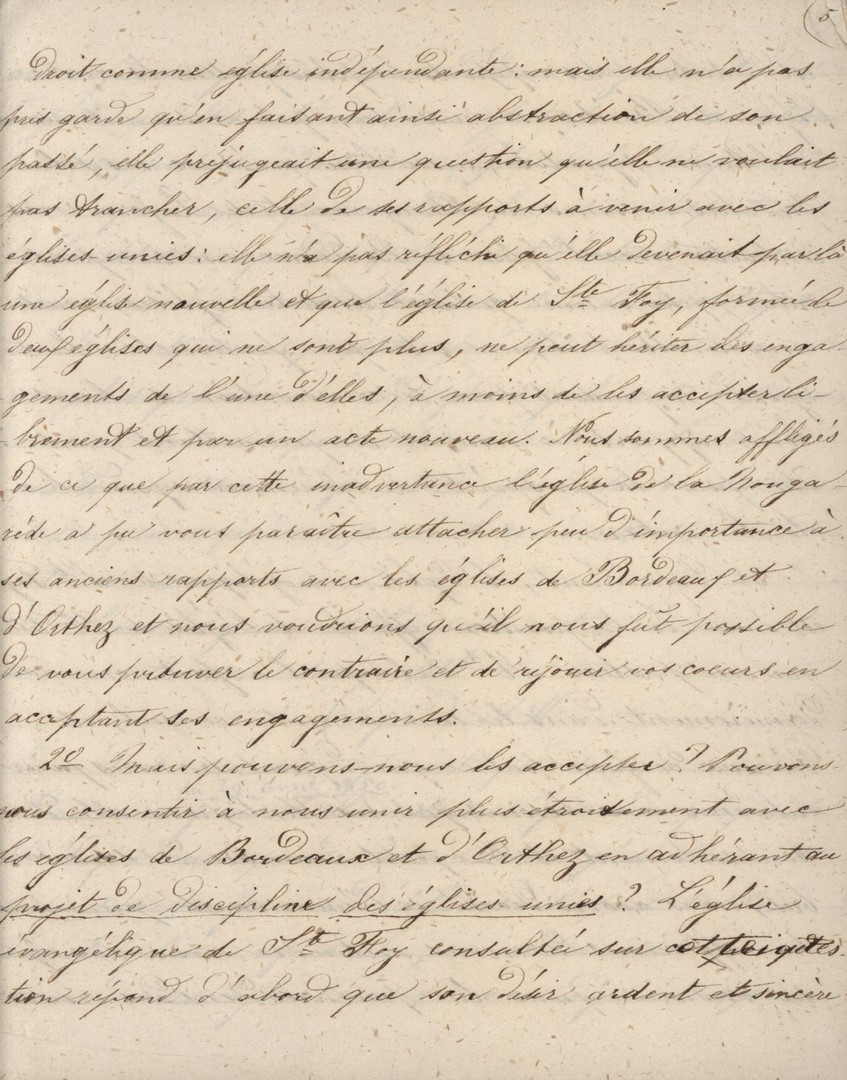 5
droit comme église indépendante : mais elle n'a pas
pris garde qu'en faisant ainsi abstraction de son
passé, elle préjugeait une question qu'elle ne voulait
pas trancher, celle de ses rapports à venir avec les
églises unies : elle n'a pas réfléchi qu'elle devenait par là
une église nouvelle et que l'église de Ste Foy, formée de
deux églises qui ne sont plus, ne peut hériter des enga-
gements de l'une d'elles, à moins de les accepter li-
-brement et par un acte nouveau. Nous sommes affligés
de ce que par cette inadvertance l'église de la Nouga-
rède a pu vous paraître attacher peu d'importance à
ses anciens rapports avec les églises de Bordeaux et
d'Orthez et nous voudrions qu'il nous fût possible
de vous prouver le contraire et de réjouir vos coeurs en
acceptant ses engagements.
2o Mais pouvons-nous les accepter ? Pouvons-
nous consentir à nous unir plus étroitement avec
les églises de Bordeaux et d'Orthez en adhérant au
projet de discipline des églises unies ? L'église
évangélique de Ste Foy consultée sur cette ques-
tion répond d'abord que son désir ardent et sincère